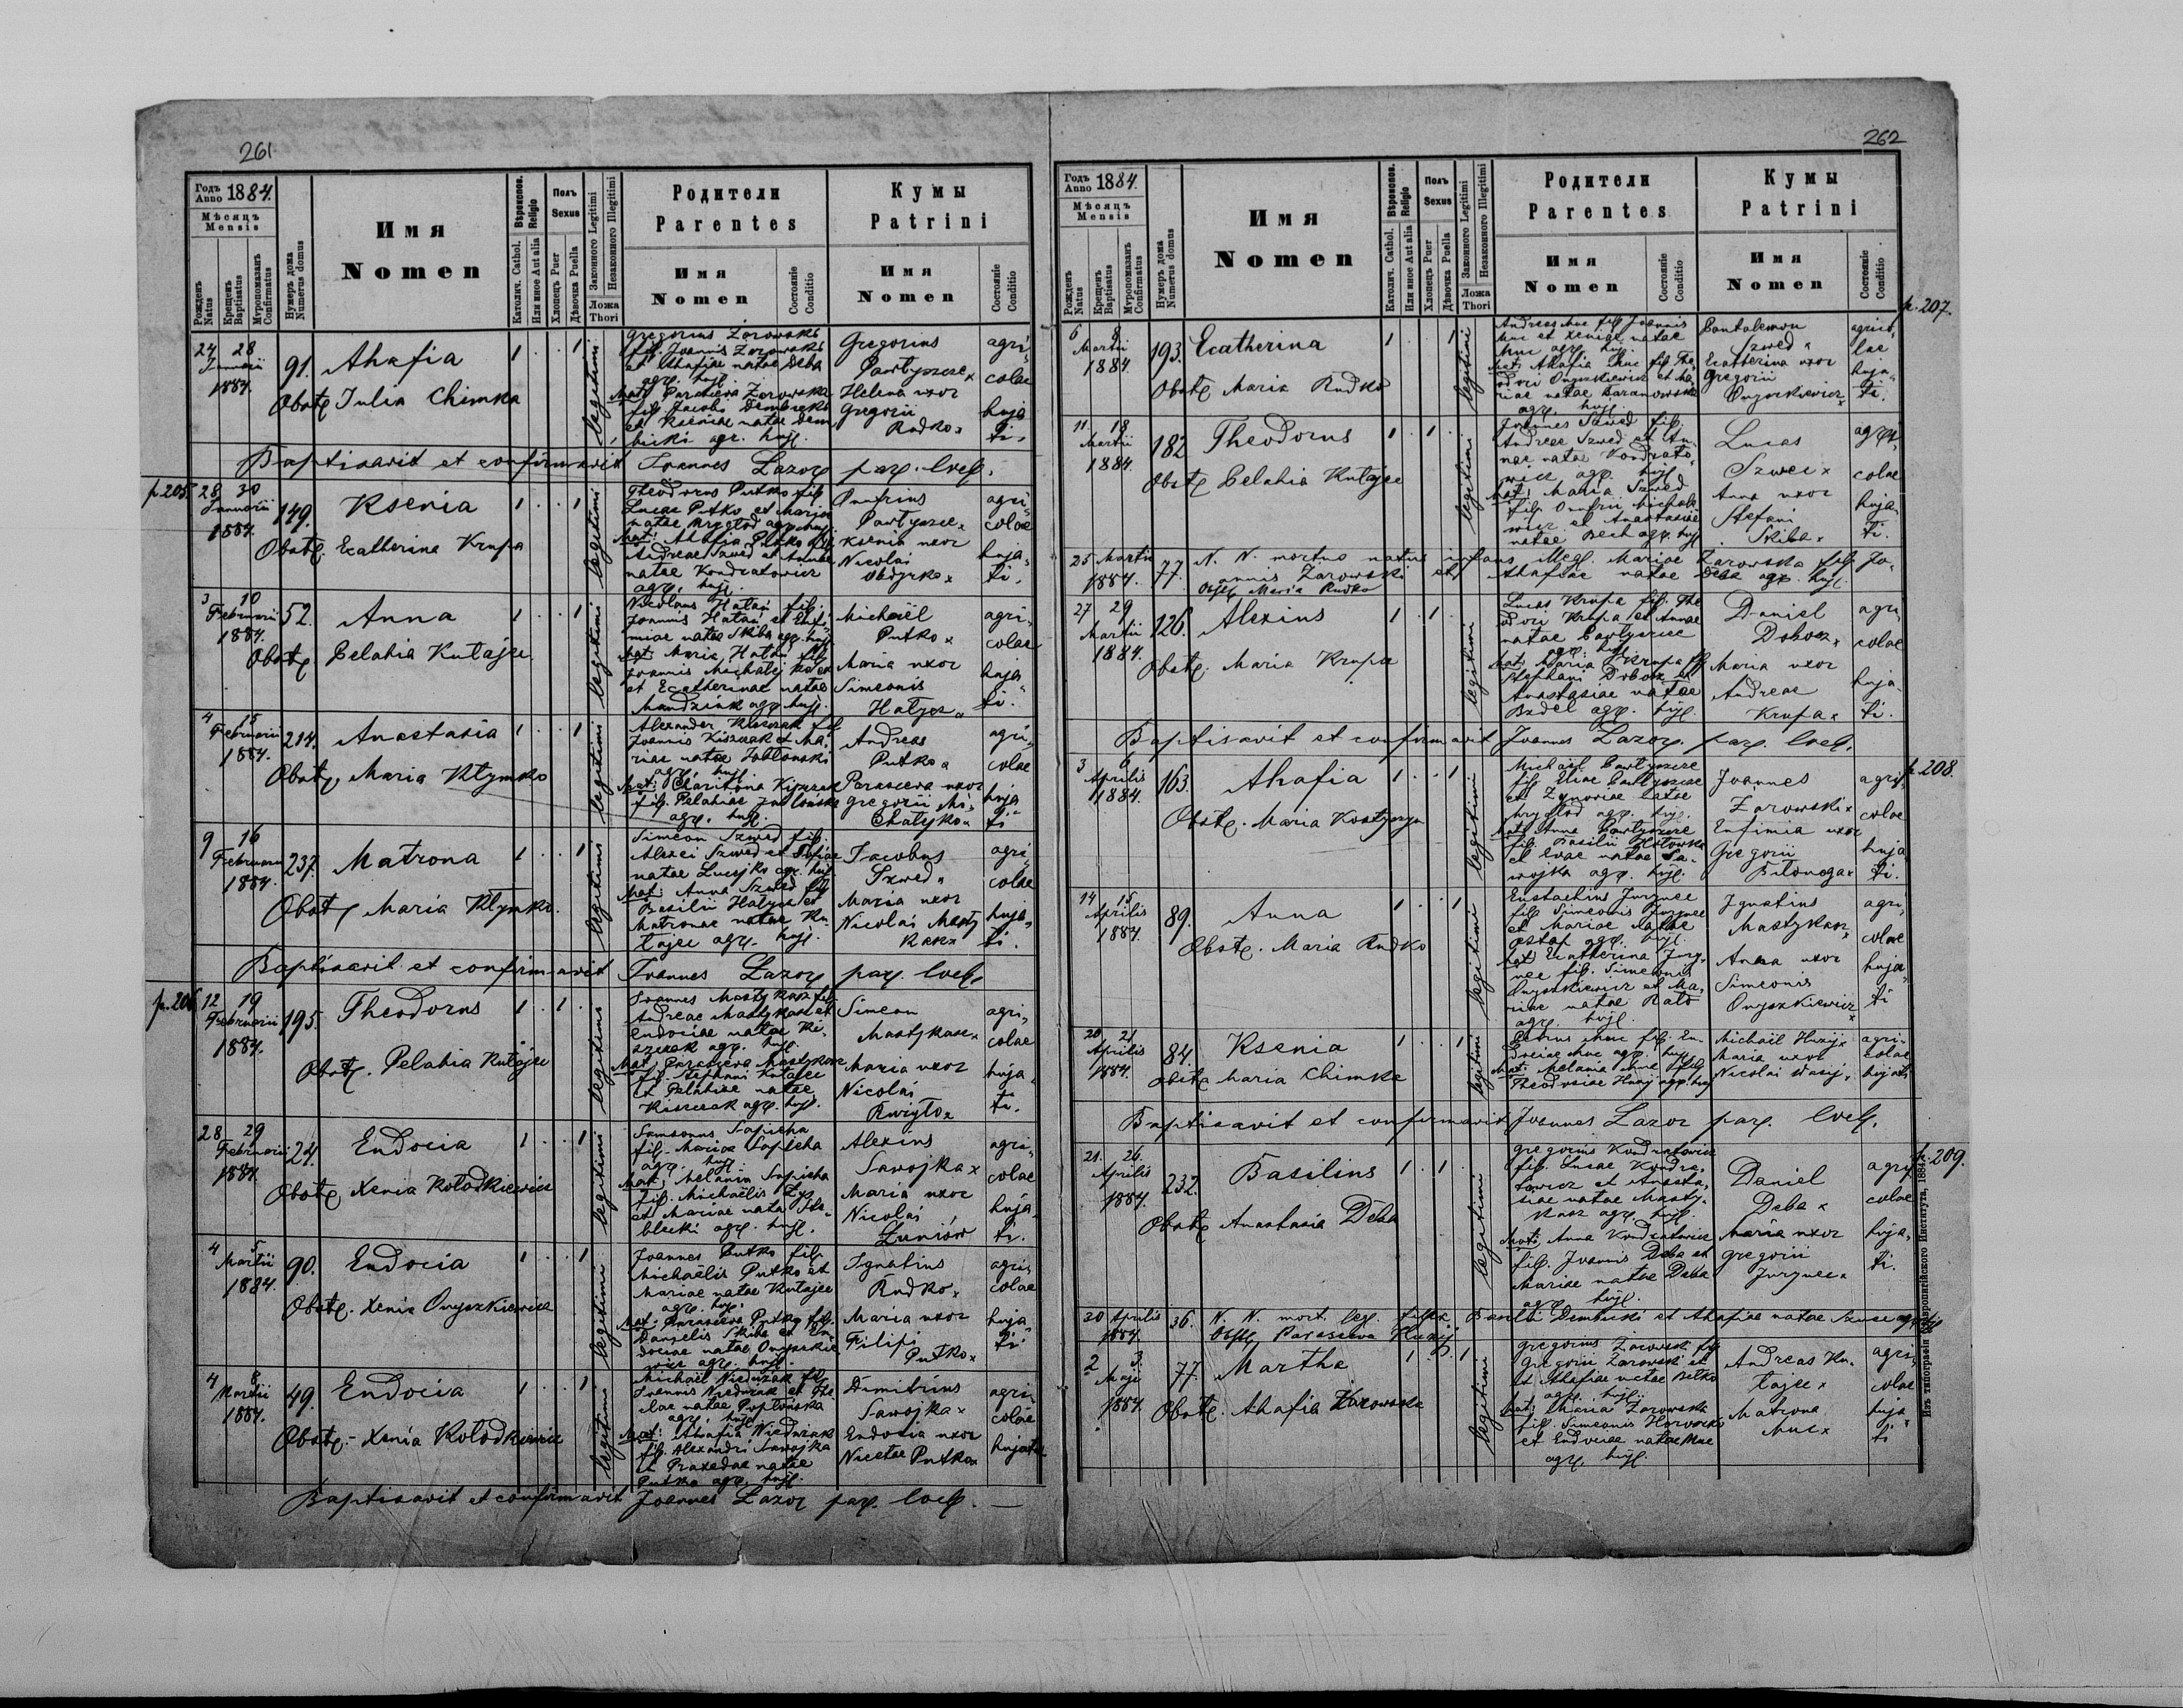 261
Годъ Anno 1884.
Мѣсяцъ Mensis
Рожденъ Natus
Крещенъ Baptisatus
Мѵропомазанъ Confirmatus
Нумеръ дома Numerus domus
Имя Nomen
Вѣроиспов. Religio
Католич. Cathol.
Или иное Aut alia
Полъ Sexus
Хлопецъ Puer
Дѣвочка Puella
Законного Legitimi
Незаконного Illegitimi
Ложа Thori
Родители Parentes
Имя Nomen
Состояніе Conditio
Кумы Patrini
Имя Nomen
Состояніе Conditio
24 28 Januarii 1884. 91. Ahafia 1 . . 1 legitimi
Obst. Julia Chimka
Gregorius Zarowski
fil. Joannis Zarowski
et Ahafiae natae Deba
agr. huj.
Mat: Parasceva Zarowska
fil. Jacobi Dembicki
et Kseniae natae Dem
bicki agr. huj.
Gregorius
Pawtyszcze x
Helena uxor
Gregorii
Rudko x
agri
colae
huja
ti.
Baptisavit et confirmavit Joannes Lazor par. loci.
p. 205. 28 30 Januarii 1884. 149. Ksenia 1 . . 1 legitimi
Obst. Ecatherina Krupa
Theodorus Putko fil.
Lucae Putko et Maria
Mat: Ahafia Putko fil.
Andreae Szwed et Annae
natae Kondratowicz
agr. huj.
Onufrius
Pawtyszcze x
Ksenia uxor
Nicolai
agri
colae
huja
ti.
3 10 Februarii 1884. 52. Anna 1 . . 1 legitimi
Obst. Pelahia Kutajce
Nicolaus Hatas fil.
Joannis Hatas et Eufi
miae natae Skiba agr. huj.
Mat: Maria Hatas fil.
et Ecatherinae natae
Mandziuk agr. huj.
Michaël
Putko x
Maria uxor
Simeonis
agri
colae
huja
ti.
4 15 Februarii 1884. 214. Anastasia 1 . . 1 legitimi
Obst. Maria Klymko
Alexander Kiszczak fil
Joannis Kiszczak et Ma
riae natae Jabłonski
agr. huj.
Mat: Charitona Kiszczak
fil. Pelahiae
agr. huj.
Andreas
Putko x
Parasceva uxor
Gregorii Mi
chatejko x
agri
colae
huja
ti
9 16 Februarii 1884. 237. Matrona 1 . . 1 legitimi
Obst. Maria Klymko.
Simeon Szwed fil.
Alexei Szwed et Sofiae
natae Lucejko agr. huj.
Mat: Anna Szwed fil
Basilii Hatycz et
Matronae natae Ku
tajce agr. huj.
Jacobus
Szwed x
Maria uxor
Nicolai Masty
kasz x
agri
colae
huja
ti.
Baptisavit et confirmavit Joannes Lazor par. loci.
p. 206. 12 19 Februarii 1884. 195. Theodorus 1 . 1 legitimus
Obst. Pelahia Kutajce
Joannes Mastykasz fil.
Andreae Mastykasz et
Eudociae natae Ki
szczak agr. huj.
Mat: Parasceva Mastykasz
fil. Stephani Kutajce
et Pelahiae natae
Kiszczak agr. huj.
Simeon
Mastykasz x
Maria uxor
Nicolai
agri
colae
huja
ti.
28 29 Februarii 1884. 24. Eudocia 1 . . 1 legitimi
Obst. Xenia Kołodkiewicz
Samsonus Sapicha
fil. Mariae Sapicha
agr. huj.
Mat: Melania Sapicha
fil. Michaëlis
et Mariae nata
agr. huj.
Alexius
Sawojka x
Maria uxor
Nicolai
Luniow
agri
colae
huja
ti.
4 5 Martii 1884. 90. Eudocia 1 . . 1 legitimi
Obst. Xenia Onyszkiewicz
Joannes Putko fil.
Michaëlis Putko et
Mariae natae Kutajce
agr. huj.
Mat: Parasceva Putko fil.
Danielis Skiba et Eu
dociae natae Onyszkie
wicz agr. huj.
Ignatius
Rudko x
Maria uxor
Filipi
Putko x
agri
colae
huja
ti
4 8 Martii 1884. 49. Eudocia 1 . . 1 legitimi
Obst. Xenia Kołodkiewicz
Michaël Niedużak fil.
Joannis Niedużak et The
clae natae
agr. huj.
Mat: Ahafia Niedużak
fil. Alexandri Sawojka
et Praxedae natae
Putko agr. huj.
Dimitrius
Sawojka x
Eudocia uxor
Nicetae Putko x
agri
colae
hujati
Baptisavit et confirmavit Joannes Lazor par. loci. —
262
Годъ Anno 1884.
Мѣсяцъ Mensis
Рожденъ Natus
Крещенъ Baptisatus
Мѵропомазанъ Confirmatus
Нумеръ дома Numerus domus
Имя Nomen
Вѣроиспов. Religio
Католич. Cathol.
Или иное Aut alia
Полъ Sexus
Хлопецъ Puer
Дѣвочка Puella
Законного Legitimi
Незаконного Illegitimi
Ложа Thori
Родители Parentes
Имя Nomen
Состояніе Conditio
Кумы Patrini
Имя Nomen
Состояніе Conditio
p. 207.
6 8 Martii 1884 193. Ecatherina 1 . . 1 legitimi
Obst. Maria Rudko
Andreas Muc fil. Joannis
Muc et Xeniae natae
Muc agr. huj.
Mat: Ahafia Muc fil. The
odori Onyszkiewicz et Ma
riae natae Baranowska
agr. huj.
Pantalemon
Szwed x
Ecatherina uxor
Gregorii
Onyszkiewicz x
agrico
lae
huja
ti.
11 18 Martii 1884. 182 Theodorus 1 . 1 legitimi
Obst. Pelahia Kutajce
Joannes Szwed fil.
Andreae Szwed et An
nae natae Kondrato
wicz agr. huj.
Mat: Maria Szwed
fil. Onufrii Michale
wicz et Anastasiae
natae Bech agr. huj
Lucas
Szwec x
Anna uxor
Stefani
Skiba x
agri
colae
huja
ti.
25 Martii 1884. 77. N. N. mortuo natus infans illeg. Mariae Zarowska fil. Jo
annis Zarowski et Ahafiae natae Deba agr. huj.
Obst. Maria Rudko
27 29 Martii 1884. 126. Alexius 1 . 1 legitimi
Obst. Maria Krupa
Lucas Krupa fil. The
odori Krupa et Annae
natae Pawtyszcze
agr. huj.
Mat: Maria Krupa fil
Stephani Dobosz et
Anastasiae natae
Bzdel agr. huj.
Daniel
Dobosz x
Maria uxor
Andreae
Krupa x
agri
colae
huja
ti.
Baptisavit et confirmavit Joannes Lazor. par. loci.
p. 208.
3 6 Aprilis 1884 163. Ahafia 1 . . 1 legitimi
Obst. Maria Kostyszyn
Michaël Pawtyszcze
fil. Eliae Pawtyszcze
et Zynoviae natae
Mat: Anna Pawtyszcze
fil. Basilii
et Evae natae Sa
wojka agr. huj.
Joannes
Zarowski x
Eufimia uxor
Gregorii
Biłonoga x
agri
colae
huja
ti.
14 15 Aprilis 1884 89. Anna 1 . . 1 legitimi
Obst. Maria Rudko
Eustachius Jurynec
fil. Simeonis Jurynec
et Mariae natae
Ostap agr. huj.
Mat: Ecatherina Jury
nec fil. Simeonis
Onyszkiewicz et Ma
riae natae
agr. huj.
Ignatius
Mastykasz x
Anna uxor
Simeonis
Onyszkiewicz x
agri
colae
huja
ti
20 21 Aprilis 1884. 84. Ksenia 1 . . 1 legitimi
Obst. Maria Chimka
Petrus Muc fil. Eu
dociae Muc agr. huj.
Mat: Melania Muc fil.
Theodosiae Huzij agr. huj
Michaël Huzij x
Maria uxor
Nicolai Wasij x
agri
colae
hujati
Baptisavit et confirmavit Joannes Lazor par. loci.
p. 209.
21. 26 Aprilis 1884. 232. Basilius 1 . 1 legitimi
Obst. Anastasia Deba
Gregorius Kondratowicz
fil. Lucae Kondra
towicz et Anasta
siae natae Masty
kasz agr. huj.
Mat: Anna Kondratowicz
fil. Joannis Deba et
Mariae natae Deba
agr. huj.
Daniel
Deba x
Maria uxor
Gregorii
Jurynec x
agri
colae
huja
ti.
30 Aprilis 1884. 36. N. N. mort. leg. filia Basilii Dembicki et Ahafiae natae
Obst. Parasceva Huzij
2 3 Maji 1884. 77. Martha 1 . . 1 legitimi
Obst. Ahafia Zarowska
Gregorius Zarowski fil.
Gregorii Zarowski et
et Ahafiae natae
agr. huj.
Mat: Maria Zarowska
fil. Simeonis
et Eudociae natae Muc
agr. huj.
Andreas Ku
tajce x
Matrona
Muc x
agri
colae
huja
ti
Изъ типографіи Ставропигійского Института, 1884.